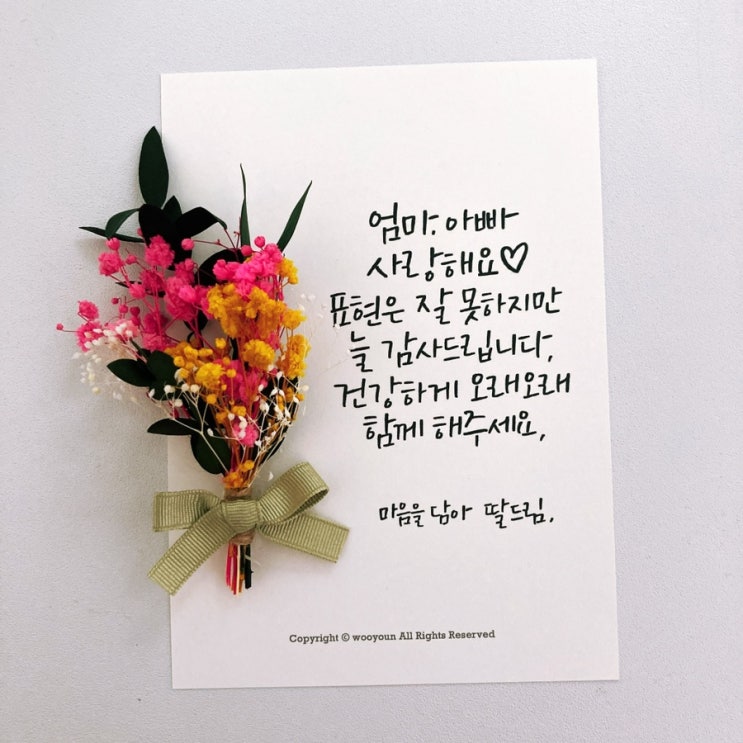 엄마, 아빠
사랑해요♡
표현은 잘 못하지만
늘 감사드립니다.
건강하게 오래오래
함께 해주세요.
마음을 담아 딸드림.
Copyright © wooyoun All Rights Reserved